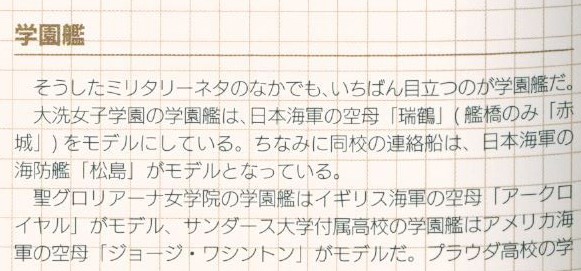 学園艦
そうしたミリタリーネタのなかでも、いちばん目立つのが学園艦だ。
大洗女子学園の学園艦は、日本海軍の空母「瑞鶴」(艦橋のみ「赤
城」)をモデルにしている。ちなみに同校の連絡船は、日本海軍の
海防艦「松島」がモデルとなっている。
聖グロリアーナ女学院の学園艦はイギリス海軍の空母「アークロ
イヤル」がモデル、サンダース大学付属高校の学園艦はアメリカ海
軍の空母「ジョージ・ワシントン」がモデルだ。プラウダ高校の学